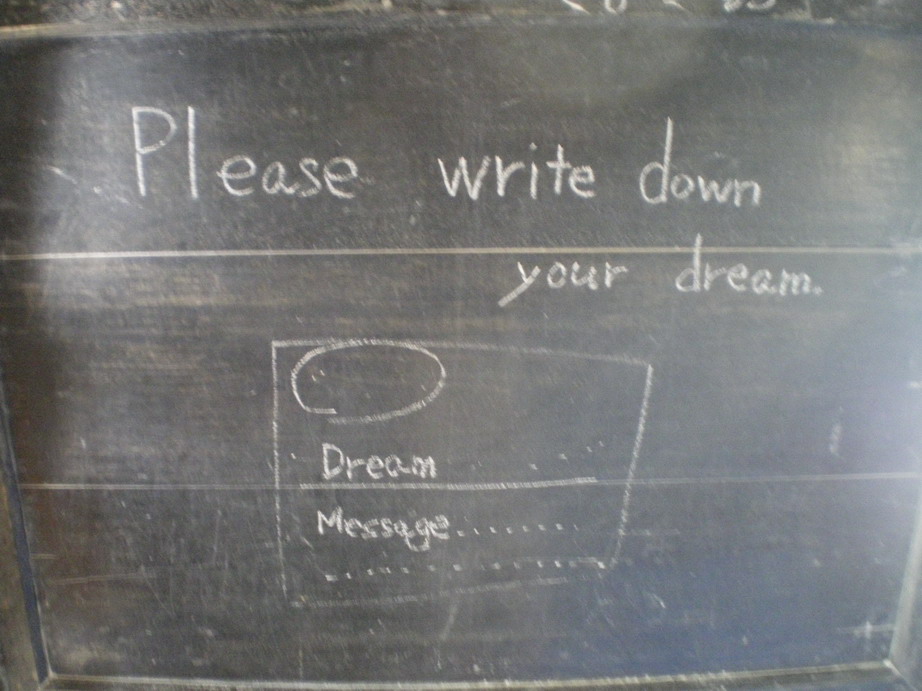 Please write down
your dream.
Dream
Message........